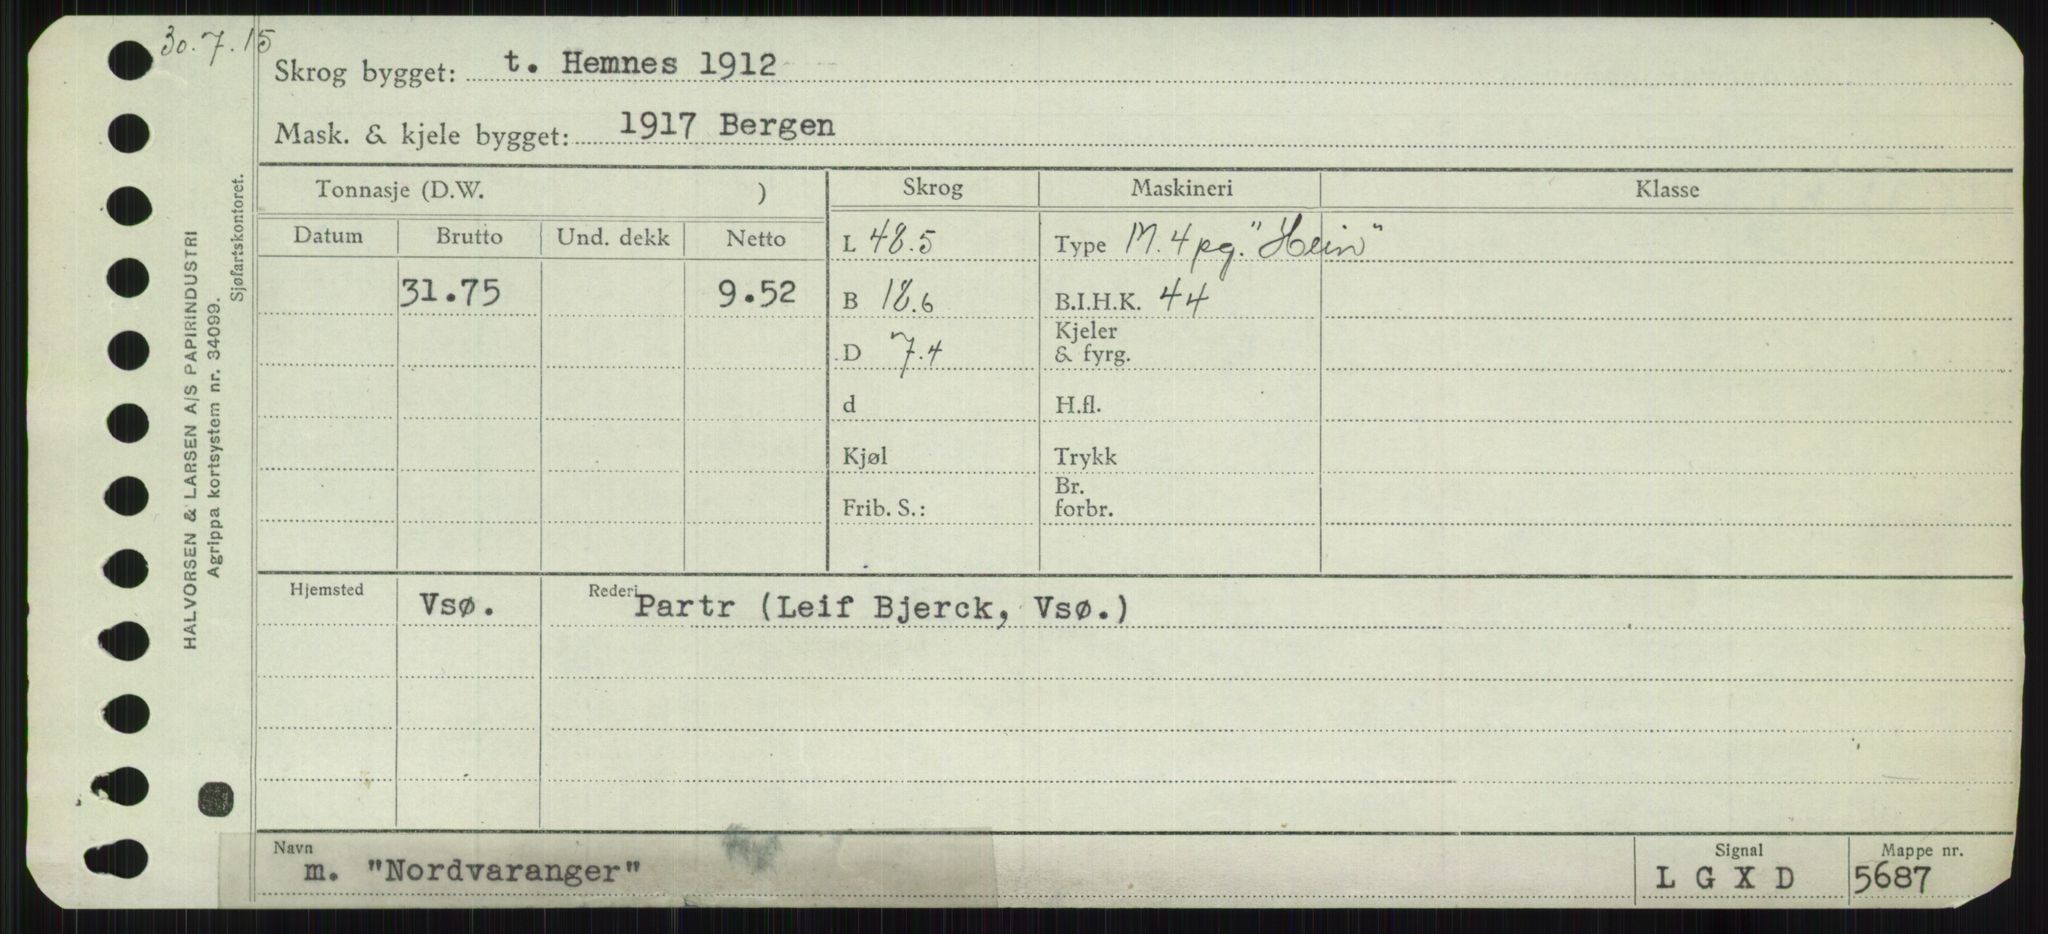 30.7.15
Skrog bygget: t. Hemnes 1912
Mask. & kjele bygget: 1917 Bergen
HALVORSEN & LARSEN A/S PAPIRINDUSTRI
Agrippa kortsystem nr. 34099.
Sjøfartskontoret.
Tonnasje (D.W. ) Skrog Maskineri Klasse
Datum Brutto Und. dekk Netto L 48.5 Type M. 4 pg. "Hein"
31.75 9.52 B 18.6 B.I.H.K. 44
D 7.4 Kjeler
& fyrg.
d H.fl.
Kjøl Trykk
Frib. S.: Br.
forbr.
Hjemsted Vsø. Rederi Partr (Leif Bjerck, Vsø.)
Navn Signal Mappe nr.
m. "Nordvaranger" L G X D 5687